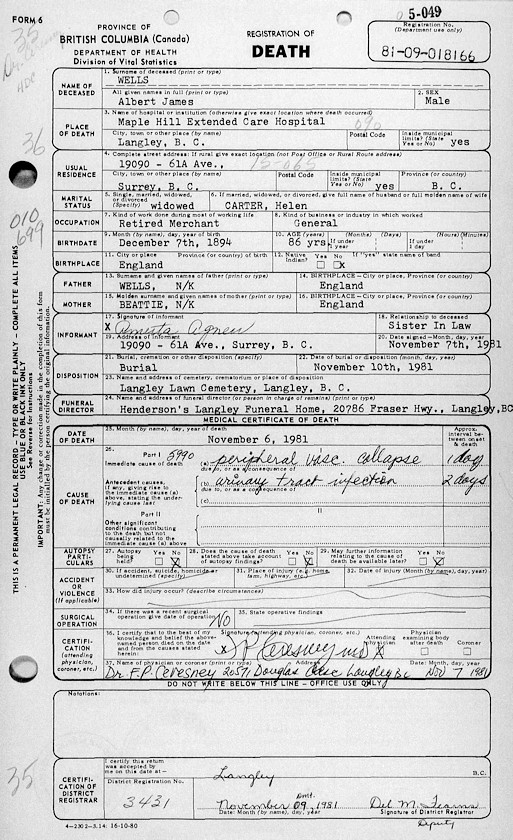 FORM 6
PROVINCE OF
BRITISH COLUMBIA (Canada)
DEPARTMENT OF HEALTH
Division of Vital Statistics
REGISTRATION OF
DEATH
5-049
Registration No.
(Department use only)
81-09-018166
35
HDC
36
010
699
THIS IS A PERMANENT LEGAL RECORD - TYPE OR WRITE PLAINLY - COMPLETE ALL ITEMS
USE BLUE OR BLACK INK ONLY
See Reverse for Instructions
IMPORTANT: Any change or correction made in the completion of this form
must be initialled by the person certifying the original information.
NAME OF DECEASED
1. Surname of deceased (print or type)
WELLS
All given names in full (print or type)
Albert James
2. SEX
Male
PLACE OF DEATH
3. Name of hospital or institution (otherwise give exact location where death occurred)
Maple Hill Extended Care Hospital
090
City, town or other place (by name)
Langley, B. C.
Postal Code
Inside municipal limits? (State Yes or No)
yes
USUAL RESIDENCE
4. Complete street address: If rural give exact location (not Post Office or Rural Route address)
19090 - 61A Ave.,
15-065
City, town or other place (by name)
Surrey, B. C.
Postal Code
Inside municipal limits? (State Yes or No)
yes
Province (or country)
B. C.
MARITAL STATUS
5. Single, married, widowed, or divorced (Specify)
widowed
6. If married, widowed, or divorced, give full name of husband or full maiden name of wife
CARTER, Helen
OCCUPATION
7. Kind of work done during most of working life
Retired Merchant
8. Kind of business or industry in which worked
General
BIRTHDATE
9. Month (by name), day, year of birth
December 7th, 1894
10. AGE (Years)
86 yrs.
If under 1 year
(Months)
(Days)
If under 1 day
(Hours)
(Minutes)
BIRTHPLACE
11. City or place
Province (or country) of birth
England
12. Native Indian?
Yes
No
X
If "yes" state name of band
FATHER
13. Surname and given names of father (print or type)
WELLS, N/K
14. BIRTHPLACE - City or place, Province (or country)
England
MOTHER
15. Maiden surname and given names of mother (print or type)
BEATTIE, N/K
16. BIRTHPLACE - City or place, Province (or country)
England
INFORMANT
17. Signature of informant
X
18. Relationship to deceased
Sister In Law
19. Address of informant
19090 - 61A Ave., Surrey, B. C.
20. Date signed - Month, day, year
November 7th, 1981
DISPOSITION
21. Burial, cremation or other disposition (specify)
Burial
22. Date of burial or disposition (month, day, year)
November 10th, 1981
23. Name and address of cemetery, crematorium or place of disposition
Langley Lawn Cemetery, Langley, B. C.
FUNERAL DIRECTOR
24. Name and address of funeral director (or person in charge of remains) (print or type)
Henderson's Langley Funeral Home, 20786 Fraser Hwy., Langley, BC
MEDICAL CERTIFICATE OF DEATH
DATE OF DEATH
25. Month (by name), day, year of death
November 6, 1981
Approx. interval between onset & death
CAUSE OF DEATH
26.
Part I
5990
Immediate cause of death
(a) peripheral vasc. collapse
1 day
due to, or as a consequence of
Antecedent causes, if any, giving rise to the immediate cause (a) above, stating the underlying cause last
(b) urinary tract infection
2 days
due to, or as a consequence of
(c)
Part II
II
Other significant conditions contributing to the death but not causally related to the immediate cause (a) above
AUTOPSY PARTICULARS
27. Autopsy being held?
Yes
No
X
28. Does the cause of death stated above take account of autopsy findings?
Yes
No
X
29. May further information relating to the cause of death be available later?
Yes
No
X
ACCIDENT OR VIOLENCE
(If applicable)
30. If accident, suicide, homicide or undetermined (specify)
31. Place of injury (e.g. home, farm, highway, etc.)
32. Date of injury (Month (by name), day, year)
33. How did injury occur? (describe circumstances)
SURGICAL OPERATION
34. If there was a recent surgical operation give date of operation
No
35. State operative findings
CERTIFICATION
(attending physician, coroner, etc.)
36. I certify that to the best of my knowledge and belief the above-named person died on the date and from the causes stated herein:
Signature (attending physician, coroner, etc.)
X
Attending physician
X
Physician examining body after death
Coroner
37. Name of physician or coroner (print or type)
Address
Date: Month, day, year
Dr. F.P. Ceresney 20571 Douglas Cresc Langley BC Nov 7 1981
DO NOT WRITE BELOW THIS LINE - OFFICE USE ONLY
Notations:
35
CERTIFICATION OF DISTRICT REGISTRAR
I certify this return was accepted by me on this date at—
Langley
B.C.
District Registration No.
3431
November 09, 1981
Date: Month (by name), day, year
Signature of District Registrar
Deputy
4-2302-3.14: 16-10-80